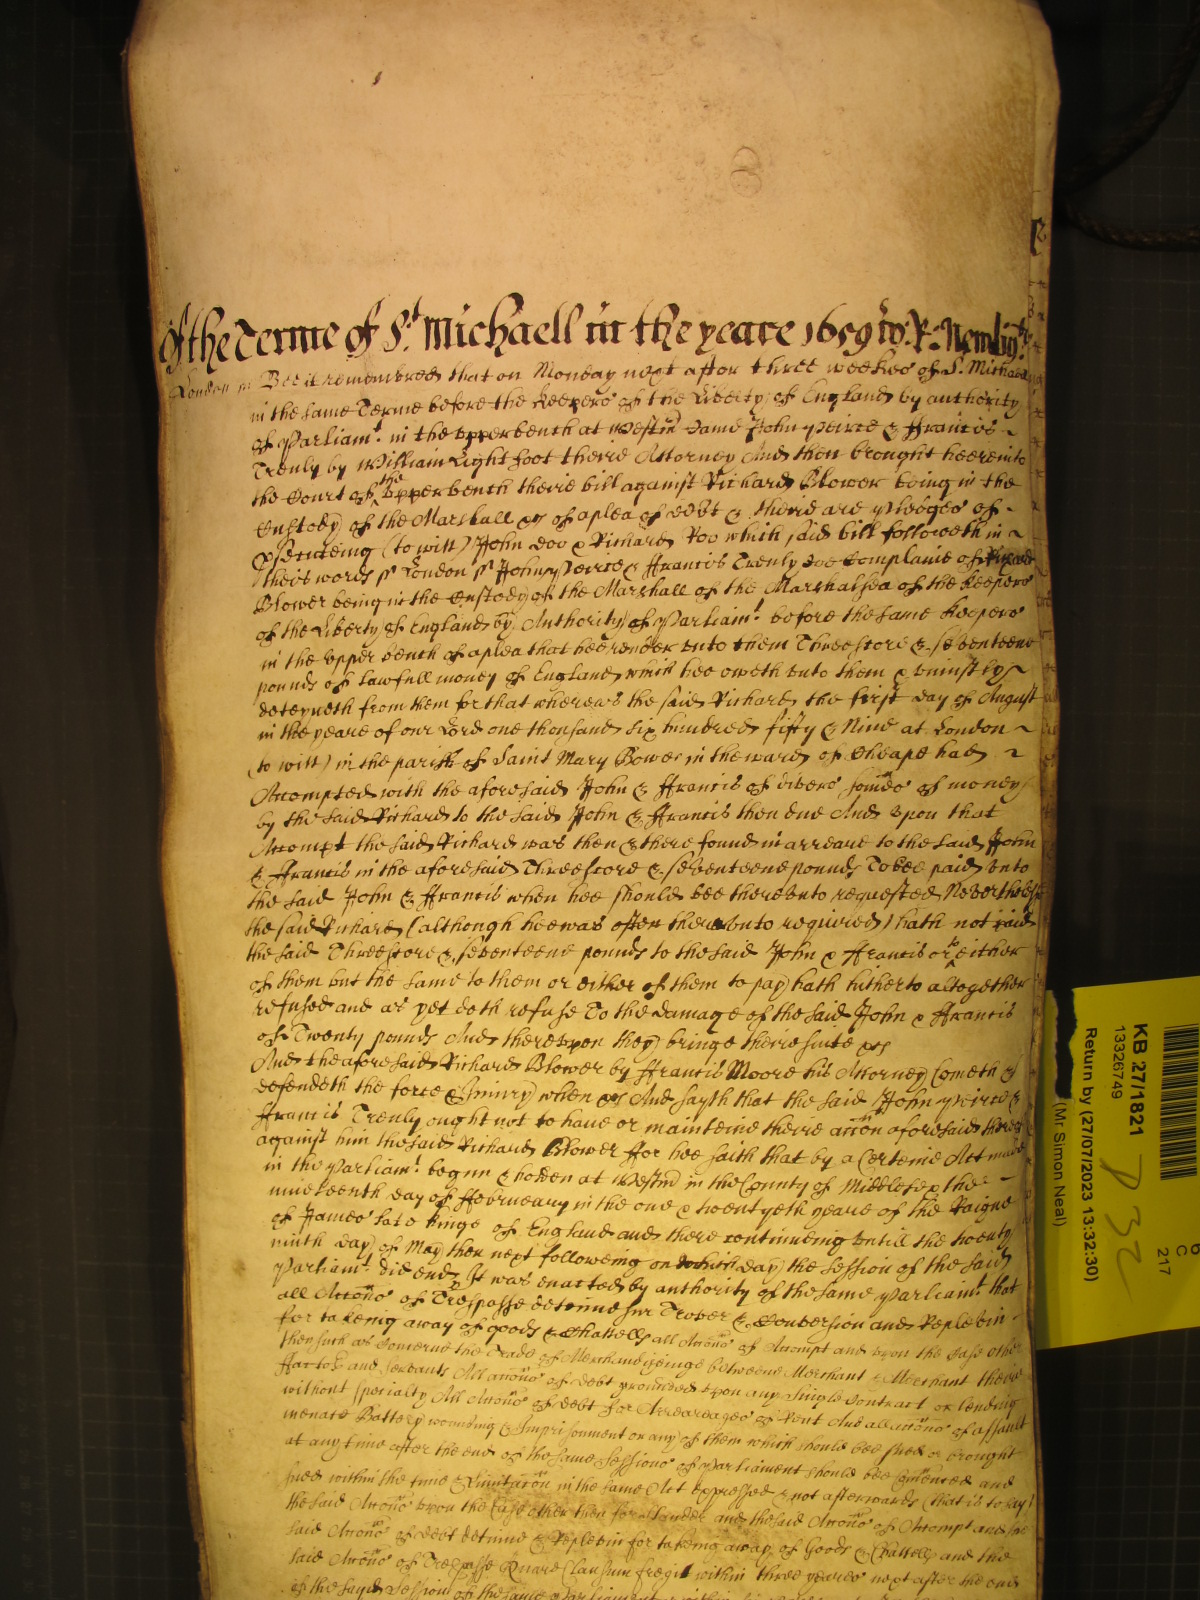 Of the Terme of St. Michaell in the yeare 1659 W: R: Newdig
London ss Bee it remembred that on Monday next after three weekes of St. Michaell
in the same Terme before the Keepers of the Liberty of England by authority
of Parliamt. in the upper bench at Westm̄ Came John Peirce & Francis
Trenly by William Lightfoot theire Attorney And then brought heere into
the Court of the upper bench theire bill against Richard Blower being in the
Custody of the Marshall &c of a plea of debt & there are pledges of
psecuteing (to witt) John Doo & Richard Roo which said bill followeth in
theis words ss London ss John Peirce & Francis Trenly doe Complaine of Richard
Blower being in the Custody of the Marshall of the Marshalsea of the Keepers
of the Liberty of England by Authority of Parliamt. before the same Keepers
in the upper bench of a plea that hee render unto them Threescore & seventeene
pounds of lawfull money of England which hee oweth unto them & uniustly
deteyneth from them for that whereas the said Richard the first day of August
in the yeare of our Lord one thousand six hundred fifty & Nine at London
(to witt) in the parish of Saint Mary Bowe in the ward of Cheape had
Accompted with the aforesaid John & Francis of divers somēs of money
by the said Richard to the said John & Francis then due And upon that
Accompt the said Richard was then & there found in arreare to the said John
& Francis in the aforesaid Threescore & seventeene pounds To bee paid unto
the said John & Francis when hee should bee thereunto requested Neverthelesse
the said Richard (although hee was often thereunto required) hath not paid
the said Threescore & seventeene pounds to the said John & Francis or to either
of them but the same to them or either of them to pay hath hitherto altogether
refused and as yet doth refuse To the damage of the said John & Francis
of Twenty pounds And thereupon they bringe theire suite &c
And the aforesaid Richard Blower by Francis Moore his Attorney Cometh &
defendeth the force & Iniury when &c And sayth that the said John Peirce &
Francis Trenly ought not to have or mainteine theire accōn aforesaid thereof
against him the said Richard Blower For hee saith that by a Certeine Act made
in the Parliamt. begun & holden at Westm̄ in the County of Middlesex the
nineteenth day of February in the one & twentyeth yeare of the Raigne
of James late Kinge of England and there continueing untill the twenty
ninth day of May then next following on which day the session of the said
Parliamt. did end It was enacted by authority of the same Parliamt. that
all Accōns of Trespasse detinue sur Trover & Conversion and Replevin
for takeing away of goods & Chattells all Accōns of Accompt and upon the Case other
then such as Concerne the Trade of Merchandizeinge betweene Merchant & Merchant theire
Factors and servants All accōns of debt grounded upon any Single Contract or lending
without specialty All Accōns of debt for Arrearages of Rent And all accōns of assault
menace Battery wounding & Imprisonment or any of them which should bee sued or brought
at any time after the end of the same Session of Parliament should bee Comenced and
sued within the time & Limitacōn in the same Act expressed & not afterwards (that is to say)
the said Accōns upon the Case other then for slander and the said Accōns of Accompt and the
said Accōns of debt detinue & Replevin for takeing away of Goods & Chattells and the
said Accōns of Trespasse Quare Clausum fregit within three yeares next after the end
of the sayd Session of the same Parliament
KB 27/1821
13326749
Return by (27/07/2023 13:32:30)
(Mr Simon Neal)
6
C
217
P 32